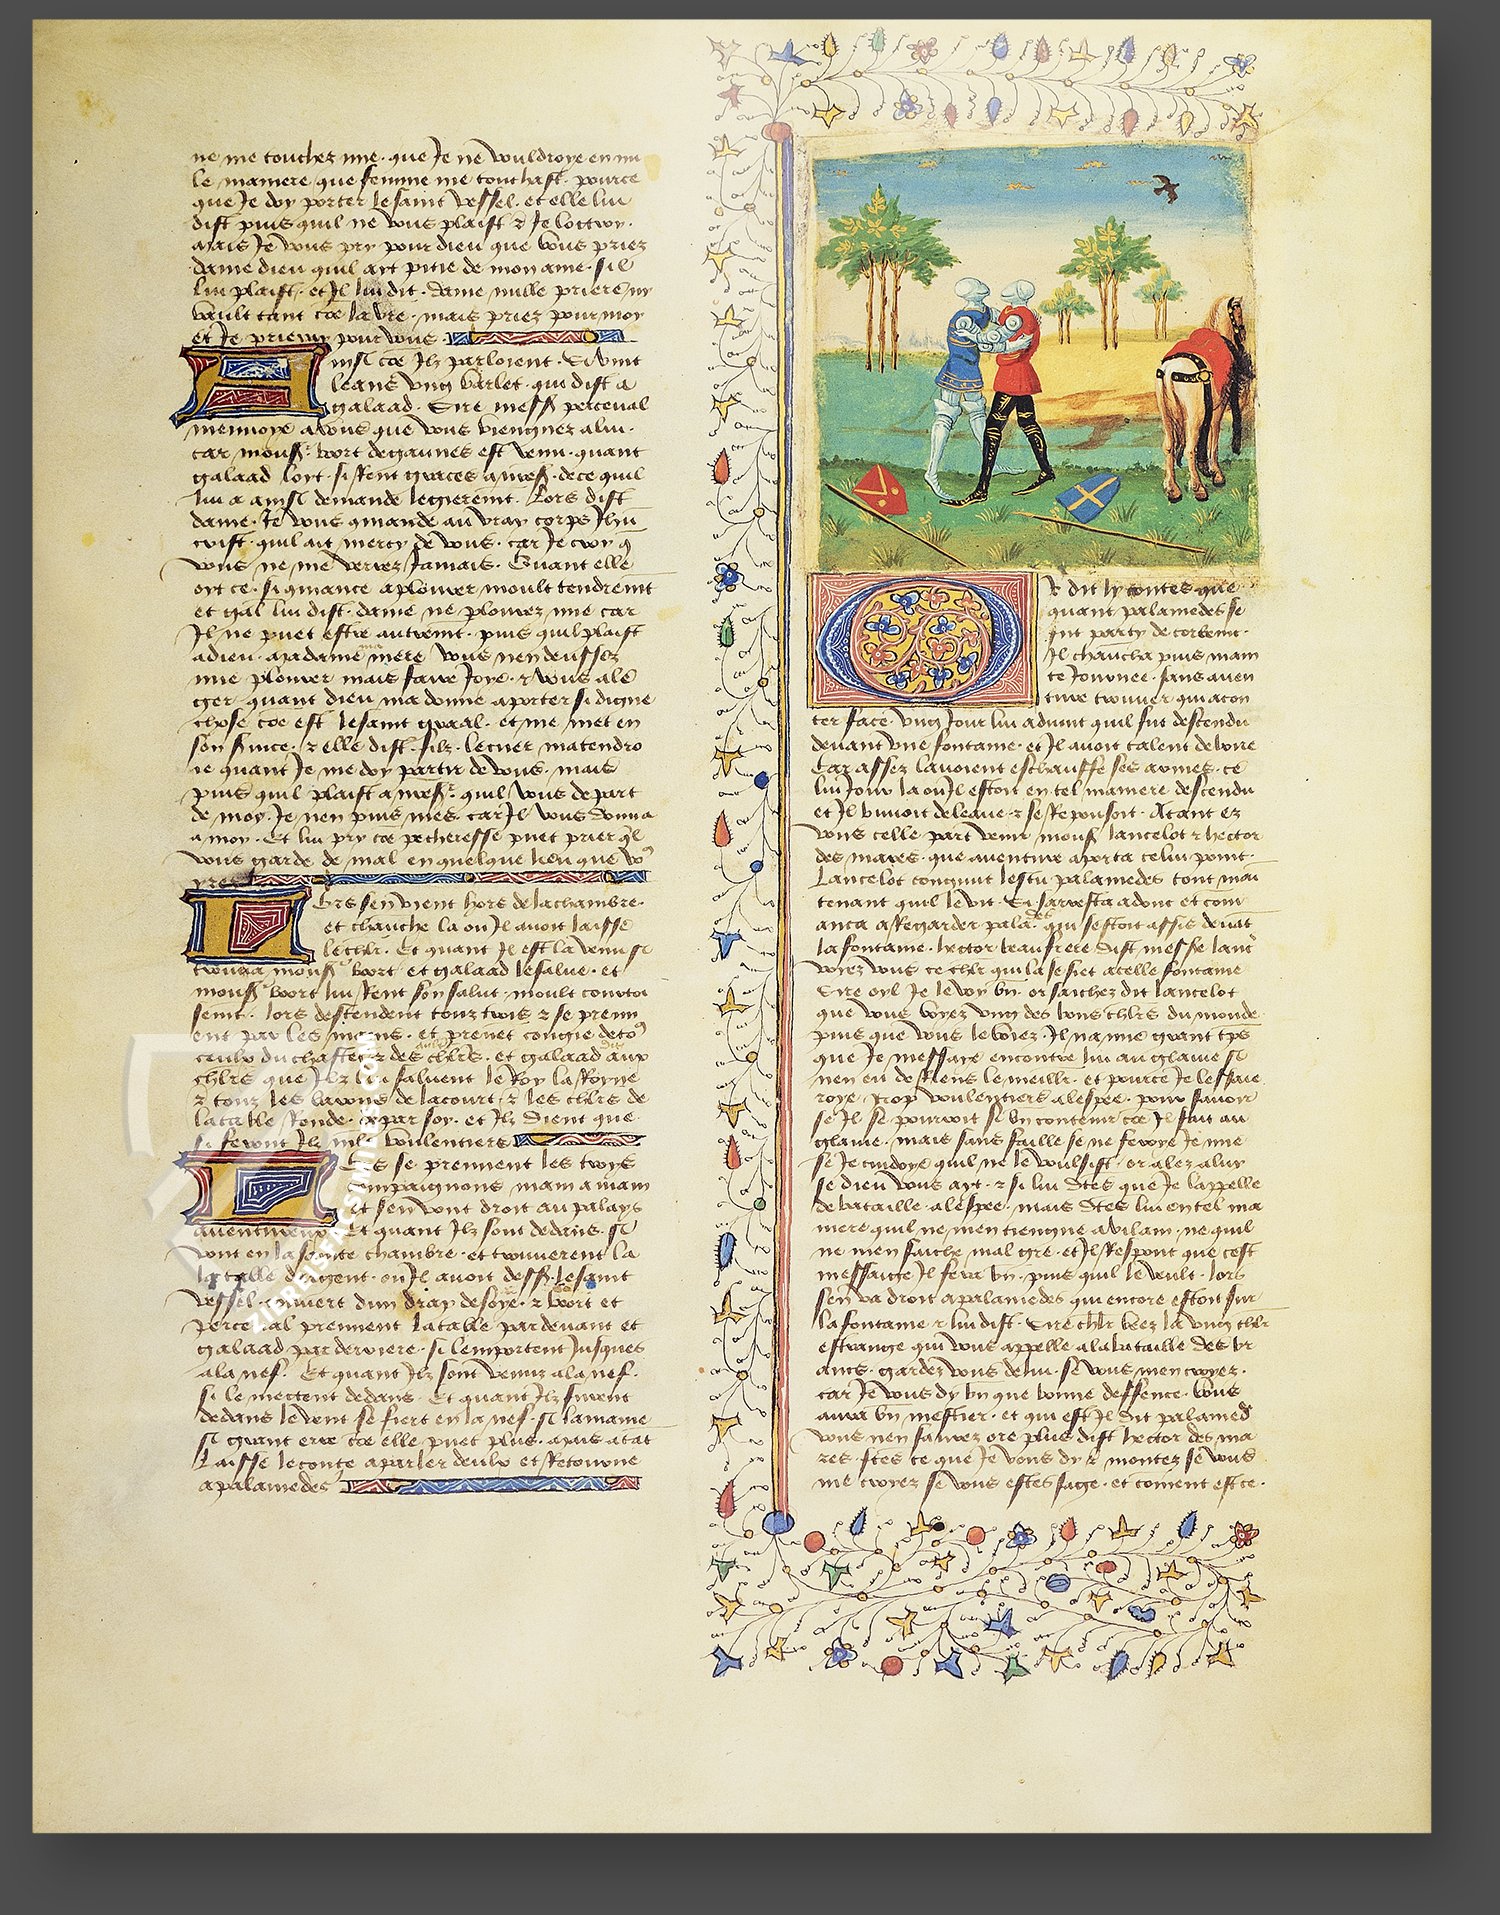 ne me touchez mie. que Je ne vouldroye en nu
le maniere que femme me touchast. pource
que Je doy porter le saint vessel. et elle lui
dist puis quil ne vous plaist & Je lottroy.
mais Je vous pry pour dieu que vous priez
dame dieu quil ait pitie de mon ame. sil
lui plaist. et Il lui dit. dame nulle priere ny
vault tant coe la vre. mais priez pour moy
et Je prieray pour vous.
Ainsi coe Ilz parloient. Si vint
leans ung varlet. qui dist a
galaad. Sire messr perceval
menvoye a vous que vous viengnez a lui.
car monsr bort de gaunes est venu. quant
galaad loyt. si Rent graces a nresr. de ce quil
lui a ainsi demande legierement. Lors dist
dame. Je vous cmande au vray corps Jhu
crist. quil ait mercy de vous. car Je croy q
vous ne me verrez Jamais. Quant elle
oyt ce. si cmance a plourer moult tendremt
et gal lui dist. dame ne plourez mie car
Il ne puet estre autremt. puis quil plaist
a dieu. madame mere vous nen deussez
mie plourer mais faire Joye. & vous ale
ger quant dieu ma donne a porter si digne
chose coe est le saint graal. et me met en
son service. & elle dist. filz. le cuer matendro
ie quant Je me doy partir de vous. mais
puis quil plaist a nresr. quil vous depart
de moy. Je nen puis mes. car Il vous donna
a moy. Et lui pry coe pecheresse puet prier ql
vous garde de mal en quelque lieu que vo9
yrez
Lors sen vient hors de la chambre.
et chauche la ou Il avoit laisse
le chlr. Et quant Il est la venu si
trouva monsr bort et galaad le salue. et
monsr bort lui Rent son salut. moult courtoi
semt. lors descendent touz trois & se prenn
ent par les mains. et prenet congie de to9
ceulx du chastel & des chlrs. et galaad dit aux
chlrs que Ilz lui saluent le Roy la Royne
& touz les barons de la court. & les chlrs de
la table Ronde. par soy. et Ilz dient que
si feront Ilz voulentiers
Lors se prennent les troys
compaignons main a main
et sen vont droit au palays
aventureux. Et quant Ilz sont dedans. si
vont en la saincte chambre. et trouverent la
la table dargent. ou Il avoit dessr. le saint
vessel. couvert dun drap de soye. & bort et
perceval prennent la table par devant et
galaad par derriere. si lemportent Jusques
a la nef. Et quant Ilz sont venuz a la nef.
si le mectent dedans. Et quant Ilz furent
dedans le vent se fiert en la nef. si la maine
si grant erre coe elle puet plus. mais atat
Laisse le conte a parler deulx et Retourne
a palamedes
Or dit ly contes que
quant palamedes se
fut party de corbenic.
Il chaucha puis main
te Journee. sans aven
ture trouver qui a con
ter face. ung Jour lui advint quil fut descendu
devant une fontaine. et Il avoit talent de boire
Car assez lavoient eschauffe ses armes. ce
lui Jour la ou Il estoit en tel maniere descendu
et Il buvoit de leaue. & se Reposoit. Atant ez
vous celle part venir monsr lancelot & hector
des mares. que aventure aporta celui point.
Lancelot congnut lescu palamedes tout main
tenant quil le vit. Si sarresta adonc et com
anca a Regarder palades. qui sestoit assis devat
la fontaine. hector beau frere dist messe lanc
voyez vous ce chlr qui la se siet a celle fontaine
Sire oyl Je le voy bn. or saichez dit lancelot
que vous voyez ung des bons chlrs du monde
puis que vous le voiez. Il na mie grant tps
que Je messaye encontre lui au glaive si
nen eu de Riens le meillr. et pource Je lessaie
roye. trop voulentiers a lespee. pour savoir
se Il se pourroit si bn contenir coe Il fait au
glaive. mais sans faille se ne feroye Je mie
se Je cuidoye quil ne le voulsist. or alez a luy
se dieu vous ayt. & si lui dtes que Je lappelle
de bataille a lespee. mais dtes lui en tel ma
niere quil ne men tiengne a vilain. ne quil
ne men saiche mal gre. et Il Respont que cest
messaige Il fera bn. puis quil le veult. lors
sen va droit a palamedes qui encore estoit sur
la fontaine & lui dist. Sire chlr veez la ung chlr
estrange qui vous appelle a la bataille des br
ancs. gardez vous de lui. se vous men croyez.
car Je vous dy bn que bonne deffence. vous
aura bn mestier. et qui est Il dit palamed
vous nen saurez ore plus dist hector des ma
res. ftes ce que Je vous dy & montez se vous
me croyez se vous estes sage. et coment est ce.
ziereis-facsimiles.com